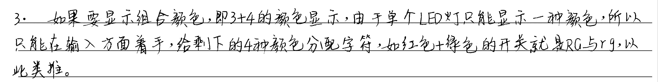 3. 如果要显示组合颜色,即3+4的颜色显示,由于单个LED灯只能显示一种颜色,所以
只能在输入方面着手,给剩下的4种颜色分配字符,如红色+绿色的开关就是RG与rg,以
此类推。